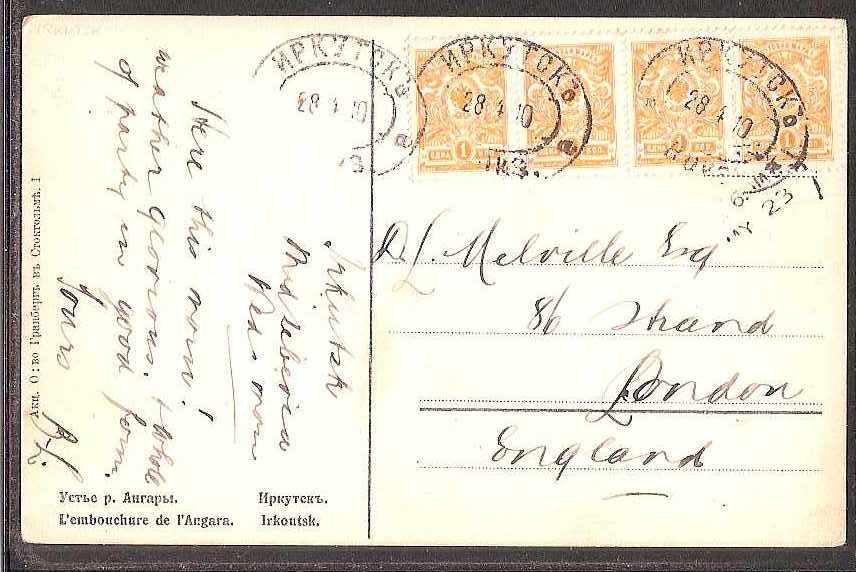 ИРКУТСКЪ
28 4 10
ИРКУТСКЪ
28 4 10
ИРКУТСКЪ
28 4 10
1
1
1
MY 23
Irkutsk
Mid Siberia
Wed. morn
Here this morn!
weather glorious. & whole
of party in good form.
Yours
D. L. Melville Esq
86 Strand
London
England
Акц. О-во Гранбергъ въ Стокгольмѣ. 1
Устье р. Ангары. Иркутскъ.
L'embouchure de l'Angara. Irkoutsk.